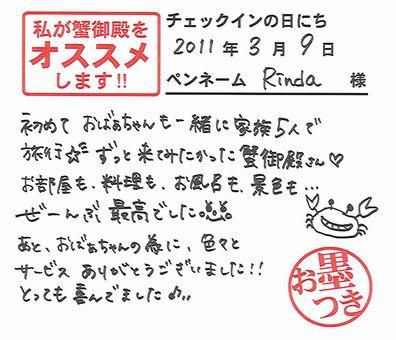 私が蟹御殿を
オススメ
します!!
チェックインの日にち
2011年3月9日
ペンネーム Rinda 様
初めて おばぁちゃんも一緒に家族5人で
旅行☆彡 ずっと来てみたかった蟹御殿さん♡
お部屋も、料理も、お風呂も、景色も…
ぜーんぶ最高でした
あと、おばぁちゃんの為に、色々と
サービス ありがとうございました!!
とっても喜んでました♪..
お墨つき